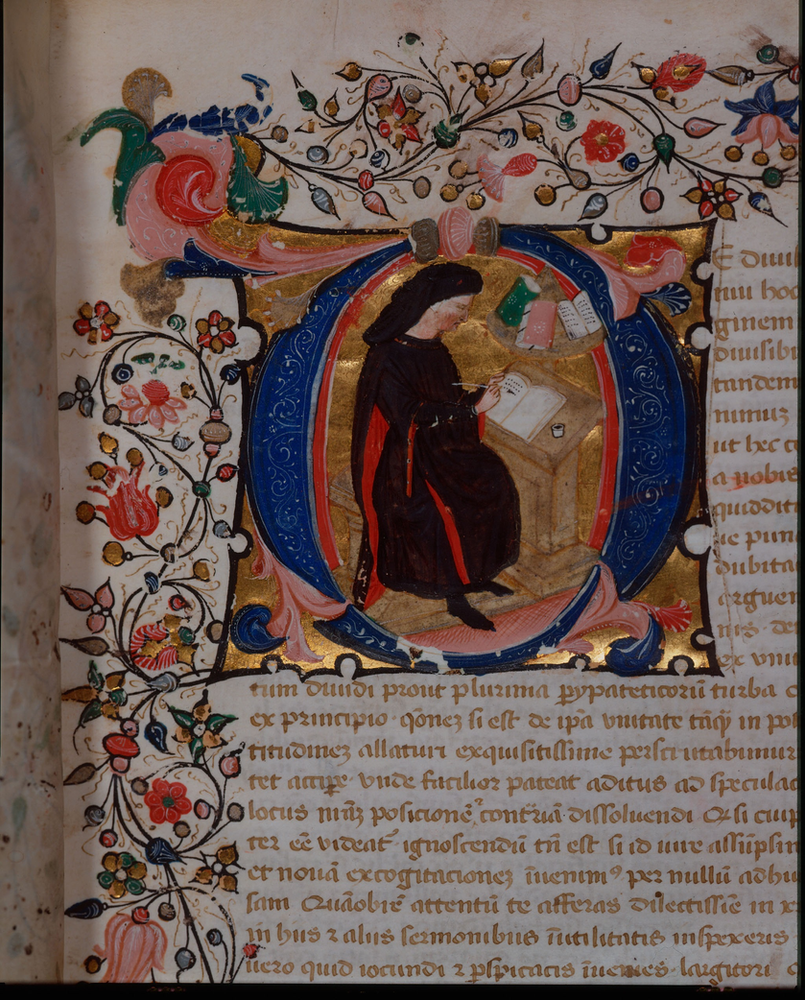 E diuis
niu hoc
ginem
diuisibi
tandem
nimuz
ut hec co
a nobis
quiddit
ue pun
dubita
arguen
nis. de
ex unu
tum diuidi prout plurima pypateticoru turba
ex principio qōnez si est de ip̄a unitate tāq̄ in po
titudinez allaturi exquisitissime perscrutabimur
tet accip̄e unde facilior pateat aditus ad speculac
locus posicione contr̄iā dissoluendi Q si cuip
ter eē uideat ignoscendū tn̄ est si id iure assūpsin
et nouā excogitacionez īuenim9 per nullū adhu
sam Quāobrē attentū te afferas dilectissīe in x
in hiis ⁊ aliis sermonibus īutilitatis inspexeris
uero quid iocundi ⁊ pspicacis īuenies largitori